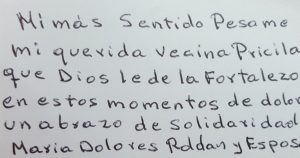 Mi más Sentido Pesame
mi querida vecina Pricila
que Dios le de la Fortalezo
en estos momentos de dolor
un abrazo de Solidaridad
Maria Dolores Roldan y Espos